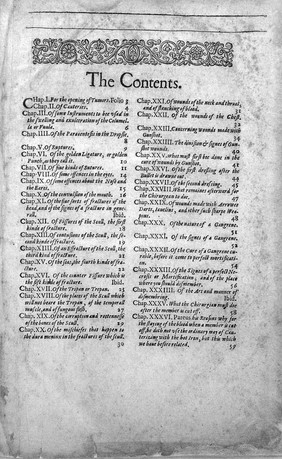 The Contents.
CHap. I. For the opening of Tumors. Folio 5
Chap. II. Of Cauteries.
Chap. III. Of some Instruments to be used in
the swelling and exulceration of the Columel-
la or Vuula. 6
Chap. IIII. Of the Paracentesis in the Dropsie,
8
Chap. V. Of Ruptures, 9
Chap. VI. Of the golden Ligature, or golden
Punct, as they call it. 10
Chap. VII. Of foure kindes of Sutures. 11
Chap. VIII. Of some offences in the eyes. 14
Chap. IX. Of some offences about the Nose and
the Eares. 15
Chap. X. Of the contusions of the mouth. 16
Chap. XI. Of the foure sorts of fractures of the
head, and of the signes of a fracture in gene-
rall, Ibid.
Chap. XII. Of Fissures of the Scull, the first
kinde of fracture. 18
Chap. XIII. Of contusions of the Scull, the se-
cond kinde of fracture. 19
Chap. XIIII. Of an effracture of the Scull, the
third kinde of fracture. 21
Chap. XV. Of the seat, the fourth kinde of fra-
cture. 22
Chap. XVI. Of the counter Fissure which is
the fift kinde of fracture. Ibid.
Chap. XVII. Of the Trepan or Trapan. 25
Chap. XVIII. Of the places of the Skull which
will not beare the Trepan, of the temporall
muscle, and of fungous flesh. 27
Chap. XIX. Of the corruption and rottennesse
of the bones of the Scull. 29
Chap. XX. Of the mischiefes that happen to
the dura meninx in the fractures of the scull.
30
Chap. XXI. Of wounds of the neck and throat,
and of staunching of blood.
Chap. XXII. Of the wounds of the Chest.
Chap. XXIII. Concerning wounds made with
Gunshot.
Chap. XXIIII. The division & signes of Gun-
shot wounds. 40
Chap. XXV. What must first bee done in the
cure of wounds by Gunshot. 41
Chap. XXVI. Of the first dressing after the
Bullet is drawne out.
Chap. XXVII. Of the second dressing. 45
Chap. XXVIII. What remaines afterward for
the Chirurgeon to doe. 47
Chap. XXIX. Of wounds made with Arrowes
Darts, Iavelins, and other such sharpe Wea-
pons. 48
Chap. XXX. Of the nature of a Gangrene.
Chap. XXXI. Of the signes of a Gangrene.
Chap. XXXII. Of the Cure of a Gangrene cu-
rable, before it come to perfect mortificati-
on.
Chap. XXXIII. Of the Signes of a perfect Ne-
crosis or Mortification, and of the place
where you should dismember. 56
Chap. XXXIIII. Of the Art and manner of
dismembring. Ibid.
Chap. XXXV. What the Chirurgion must doe
after the member is cut off. 58
Chap. XXXVI. Pareus his Reasons why for
the staying of the blood when a member is cut
off, hee doth not use the ordinary way of Cau-
terising with the hot Iron, but this which
we have before related. 59